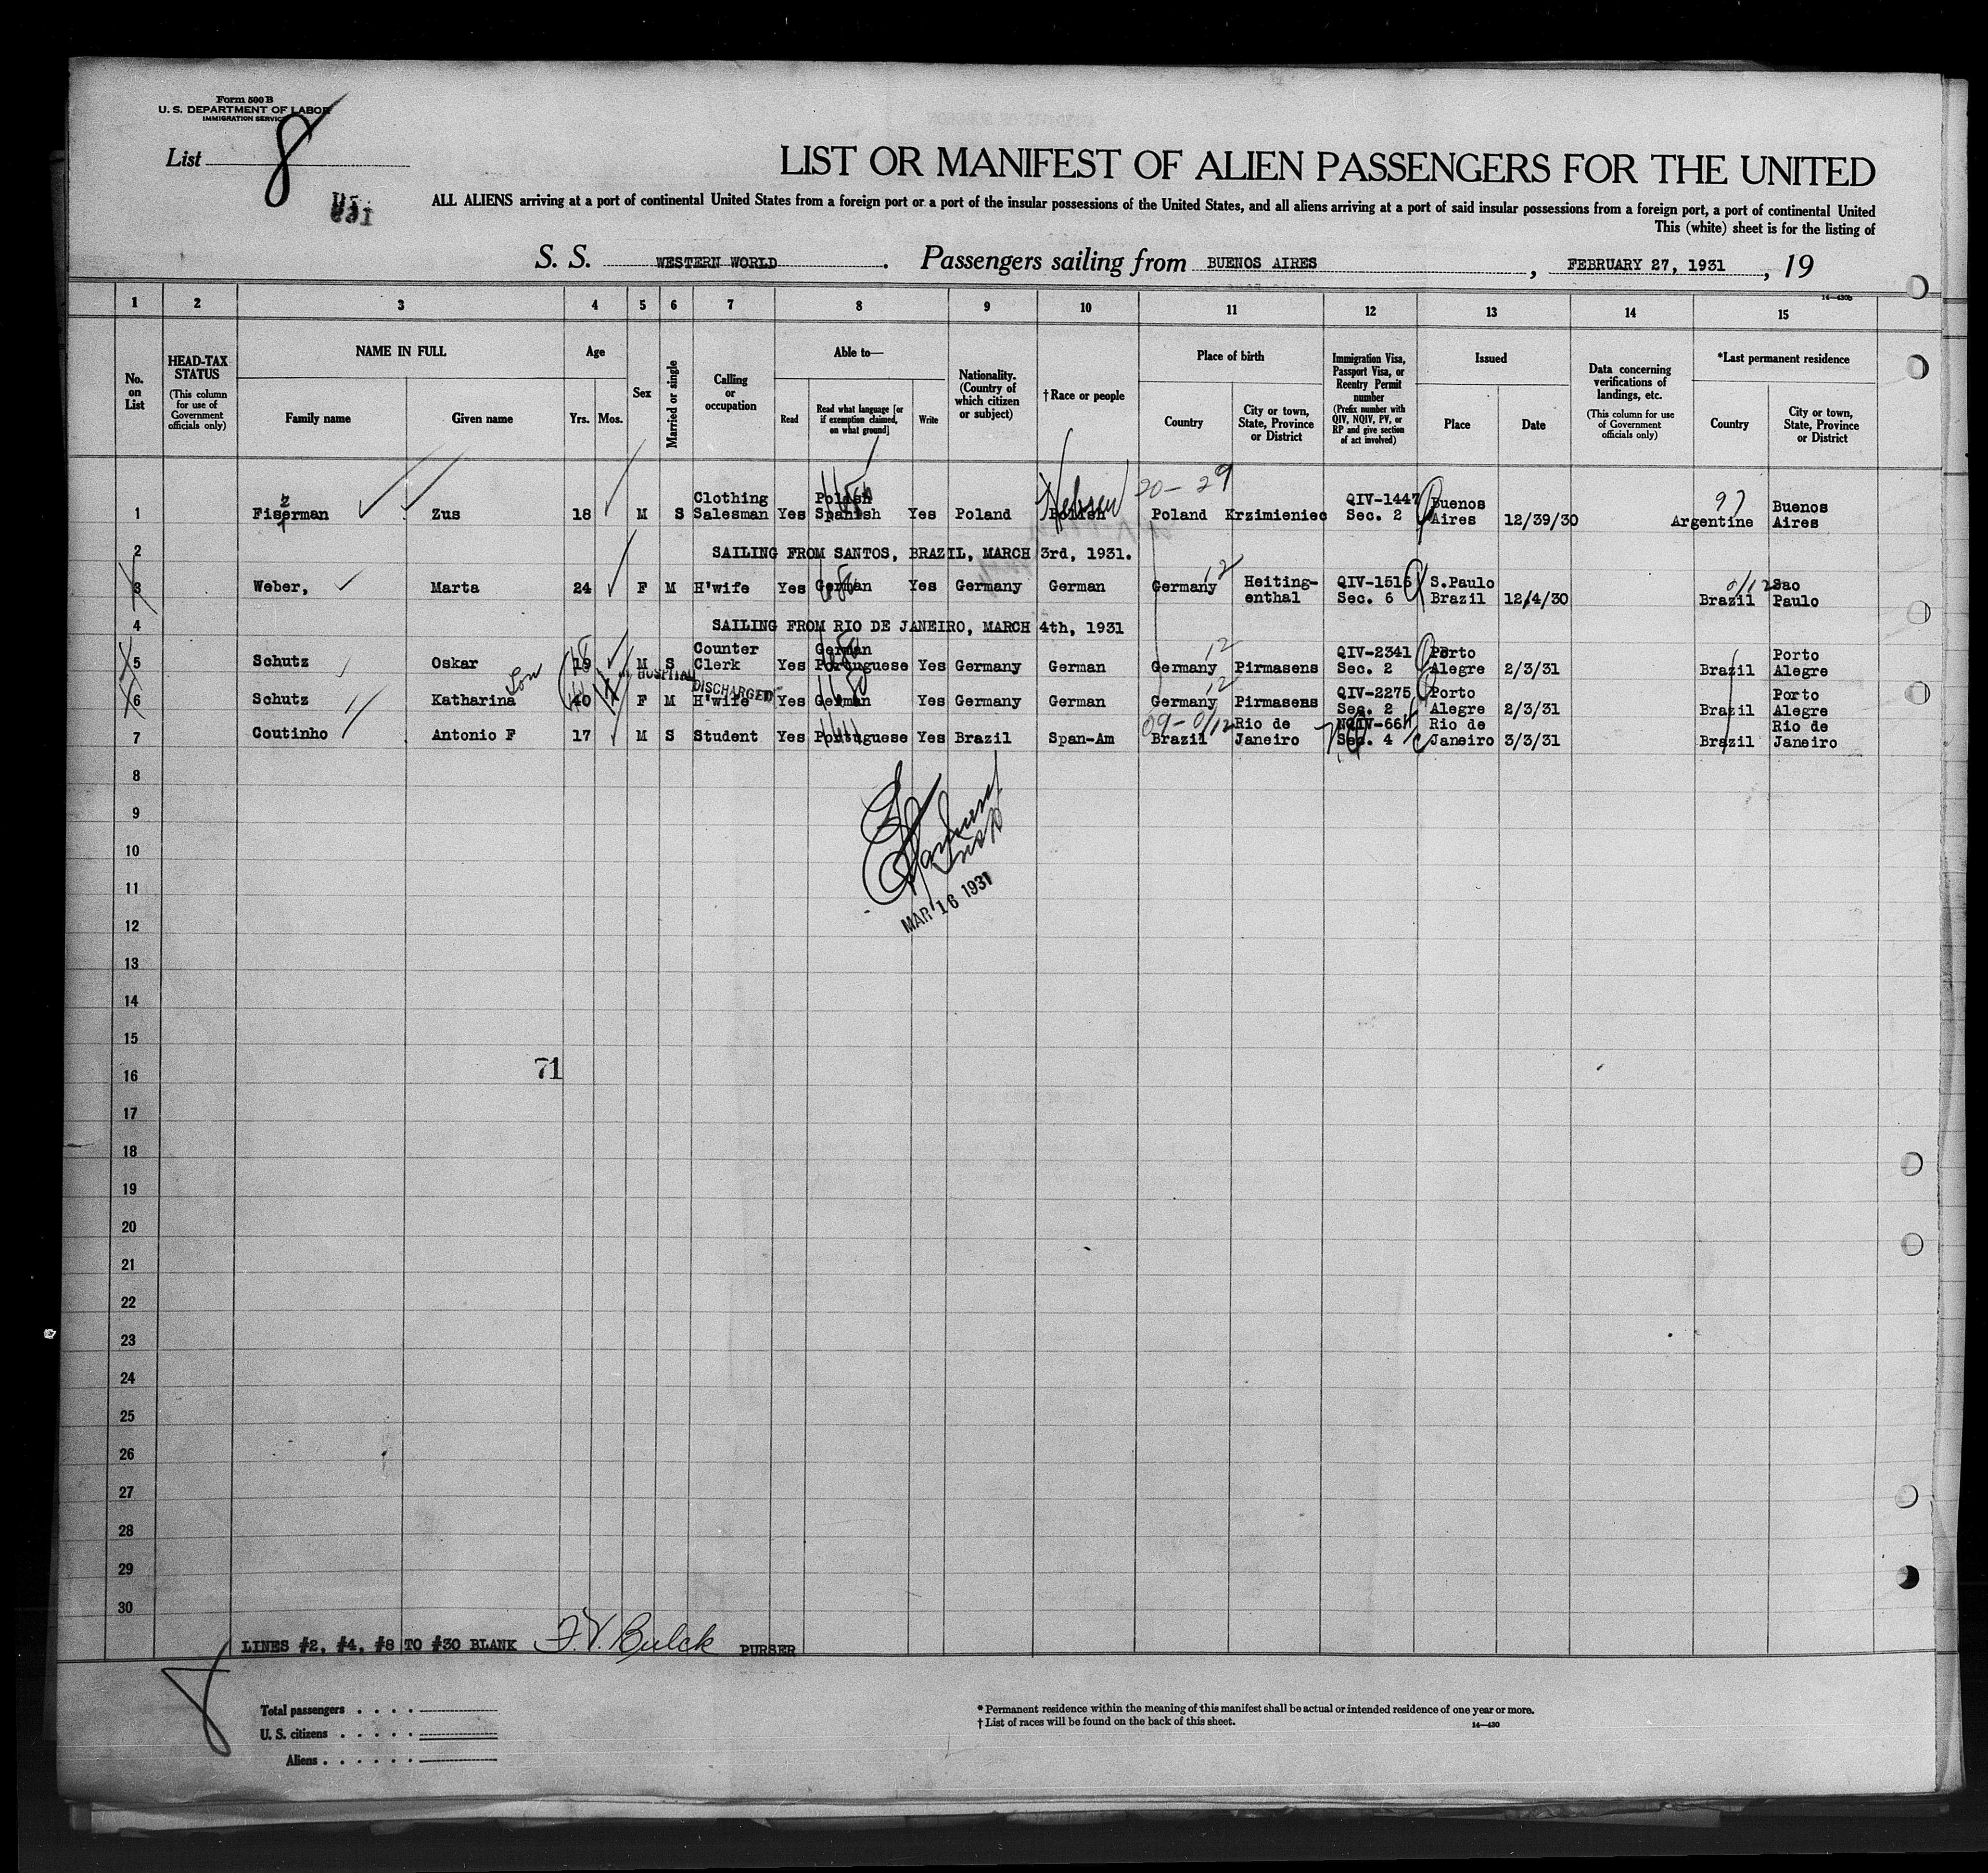 Form 500 B
U. S. DEPARTMENT OF LABOR
IMMIGRATION SERVICE
List 8
LIST OR MANIFEST OF ALIEN PASSENGERS FOR THE UNITED
ALL ALIENS arriving at a port of continental United States from a foreign port or a port of the insular possessions of the United States, and all aliens arriving at a port of said insular possessions from a foreign port, a port of continental United
This (white) sheet is for the listing of
S. S. WESTERN WORLD. Passengers sailing from BUENOS AIRES, FEBRUARY 27, 1931, 19
14—430b
1 2 3 4 5 6 7 8 9 10 11 12 13 14 15
No. on List
HEAD-TAX STATUS (This column for use of Government officials only)
NAME IN FULL Family name Given name
Age Yrs. Mos.
Sex
Married or single
Calling or occupation
Able to— Read Read what language [or if exemption claimed, on what ground] Write
Nationality. (Country of which citizen or subject)
†Race or people
Place of birth Country City or town, State, Province or District
Immigration Visa, Passport Visa, or Reentry Permit number (Prefix number with QIV, NQIV, PV, or RP and give section of act involved)
Issued Place Date
Data concerning verifications of landings, etc. (This column for use of Government officials only)
*Last permanent residence Country City or town, State, Province or District
1 Fiserman Zus 18 M S Clothing Salesman Yes Polish Spanish Yes Poland Polish Hebrew 20-29 Poland Krzimieniec QIV-1447 Sec. 2 Buenos Aires 12/39/30 97 Argentine Buenos Aires
2 SAILING FROM SANTOS, BRAZIL, MARCH 3rd, 1931.
3 Weber, Marta 24 F M H'wife Yes German Yes Germany German Germany 12 Heiting-enthal QIV-1516 Sec. 6 S.Paulo Brazil 12/4/30 0/12 Brazil Sao Paulo
4 SAILING FROM RIO DE JANEIRO, MARCH 4th, 1931
5 Schutz Oskar Son 19 M S Counter Clerk Yes German Portuguese Yes Germany German Germany 12 Pirmasens QIV-2341 Sec. 2 Porto Alegre 2/3/31 Brazil Porto Alegre
HOSPITAL DISCHARGED
6 Schutz Katharina 40 F M H'wife Yes German Yes Germany German Germany 12 Pirmasens QIV-2275 Sec. 2 Porto Alegre 2/3/31 Brazil Porto Alegre
7 Coutinho Antonio F 17 M S Student Yes Portuguese Yes Brazil Span-Am 09-0/12 Brazil Rio de Janeiro NQIV-664 Sec. 4 Rio de Janeiro 3/3/31 Brazil Rio de Janeiro
8
9
10
11
12
MAR 16 1931
13
14
15
16
71
17
18
19
20
21
22
23
24
25
26
27
28
29
30
LINES #2, #4, #8 TO #30 BLANK F.V. Bulck PURSER
8
Total passengers
U. S. citizens
Aliens
* Permanent residence within the meaning of this manifest shall be actual or intended residence of one year or more.
† List of races will be found on the back of this sheet.
14—430